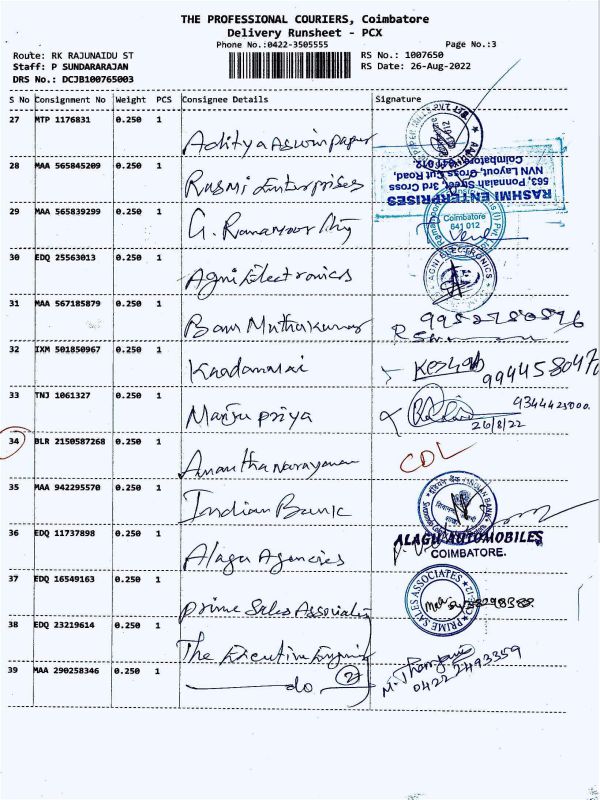 THE PROFESSIONAL COURIERS, Coimbatore
Delivery Runsheet - PCX
Phone No.:0422-3505555 Page No.:3
Route: RK RAJUNAIDU ST RS No.: 1007650
Staff: P SUNDARARAJAN RS Date: 26-Aug-2022
DRS No.: DCJB100765003
S No Consignment No Weight PCS Consignee Details Signature
27 MTP 1176831 0.250 1
Aditya Aswin paper
28 MAA 565845209 0.250 1
Rasmi Enterprises
RASHMI ENTERPRISES
563, Ponnaiah Street, 3rd Cross
NVN Layout, Cross Cut Road,
Coimbatore-641 012.
29 MAA 565839299 0.250 1
G. 
Coimbatore
641 012
30 EDQ 25563013 0.250 1
Agni Electronics
AGNI ELECTRONICS
31 MAA 567185879 0.250 1
Bam Muthukumar
32 IXM 501850967 0.250 1
Kaadamalai 
33 TNJ 1061327 0.250 1
Manju priya
26/8/22
34 BLR 2150587268 0.250 1
Anantha narayanan CDL
35 MAA 942295570 0.250 1
Indian Bank
INDIAN BANK
36 EDQ 11737898 0.250 1
Alagu Agencies
ALAGU AUTOMOBILES
COIMBATORE.
37 EDQ 16549163 0.250 1
prime Sales Associates
PRIME SALES ASSOCIATES
38 EDQ 23219614 0.250 1
The Executive Engineer
39 MAA 290258346 0.250 1
do (2)
0422 2493359